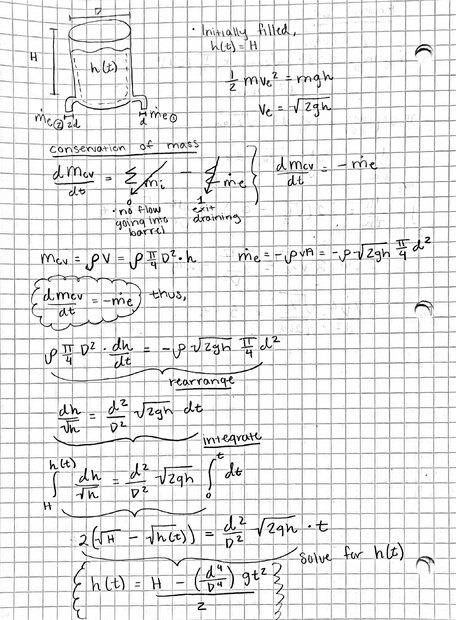 D
H
h(t)
ṁe② 2d
d ṁe①
· Initially filled,
h(t) = H
1/2 mve² = mgh
ve = √2gh
conservation of mass
dmcv/dt = Σ ṁi - Σ ṁe } dmcv/dt = - ṁe
0 1
· no flow going into barrel
exit draining
mcv = ρV = ρ π/4 D² · h ṁe = -ρVA = -ρ√2gh π/4 d²
dmcv/dt = -ṁe thus,
ρ π/4 D² · dh/dt = -ρ √2gh π/4 d²
rearrange
dh/√h = d²/D² √2gh dt
integrate
∫_H^h(t) dh/√h = d²/D² √2gh ∫_0^t dt
2(√H - √h(t)) = d²/D² √2gh · t
solve for h(t)
h(t) = H - (d⁴/D⁴) gt²
2